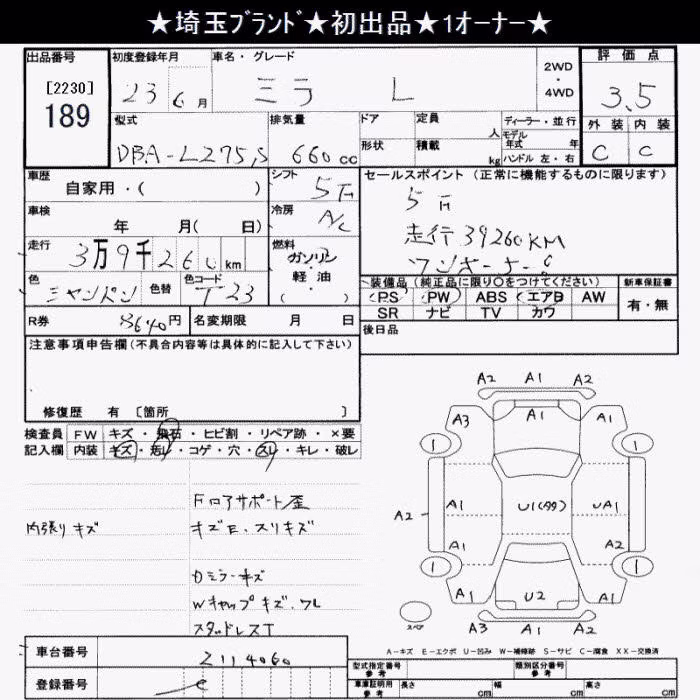 ★埼玉ﾌﾞﾗﾝﾄﾞ★初出品★1オーナー★
出品番号 初度登録年月 車名・グレード 2WD ・ 4WD 評価点
[2230] 23 6月 ミラ L 3.5
189
型式 排気量 ドア 定員 人 ディーラー・並行 外装 内装
DBA-L275S 660cc 形状 積載 kg モデル年式 年 ハンドル 左・右 C C
車歴 シフト セールスポイント (正常に機能するものに限ります)
自家用・( ) 5F 5F
車検 冷房 走行39260KM
年 月( 日) A/C ワンオーナー
走行 燃料
3万9千260km ガソリン・軽・油 ( )
色 色替 色コード 装備品 (純正品に限り○をつけてください) 新車保証書
シャンパン T23 PS PW ABS エアB AW 有・無
SR ナビ TV カワ
R券 8640円 名変期限 月 日 後日品
注意事項申告欄(不具合内容等は具体的に記入して下さい)
修復歴 有 [箇所 ]
検査員 FW キズ・飛石・ヒビ割・リペア跡・×要
記入欄 内装 キズ・汚レ・コゲ・穴・スレ・キレ・破レ
Fロアサポート歪
内張りキズ キズE、スリキズ
カミラーキズ
Wキャップキズ、ワレ
スタッドレスT
A2 A1 A2
A3 A1 A2
1 1
A1 A1
A2 U1(タタ) A2
A1 A1
1 1
U2
スペア A3 A1 A2
A-キズ E-エクボ U-凹み W-補修跡 S-サビ C-腐食 XX-交換済
車台番号 Z114060
登録番号
型式指定番号 参考 類別区分番号 参考
車庫証明用 参考 長さ cm 幅 cm 高さ cm